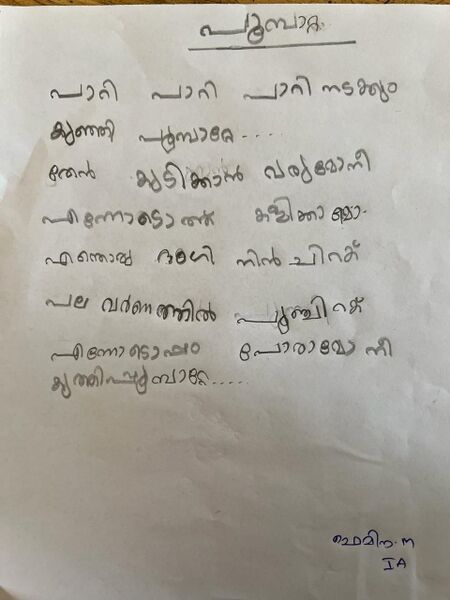 പൂമ്പാറ്റ
പാറി പാറി പാറി നടക്കും
കുഞ്ഞി പൂമ്പാറ്റേ.....
തേൻ കുടിക്കാൻ വരുമോ നീ
എന്നോടൊത്ത് കളിക്കാമോ.
എന്തൊരു ഭംഗി നിൻ ചിറക്
പല വർണത്തിൽ പൂഞ്ചിറക്
എന്നോടൊപ്പം പോരാമോ നീ
കുത്തിപ്പൂമ്പാറ്റേ.....
ഫെമിന. ന
IA